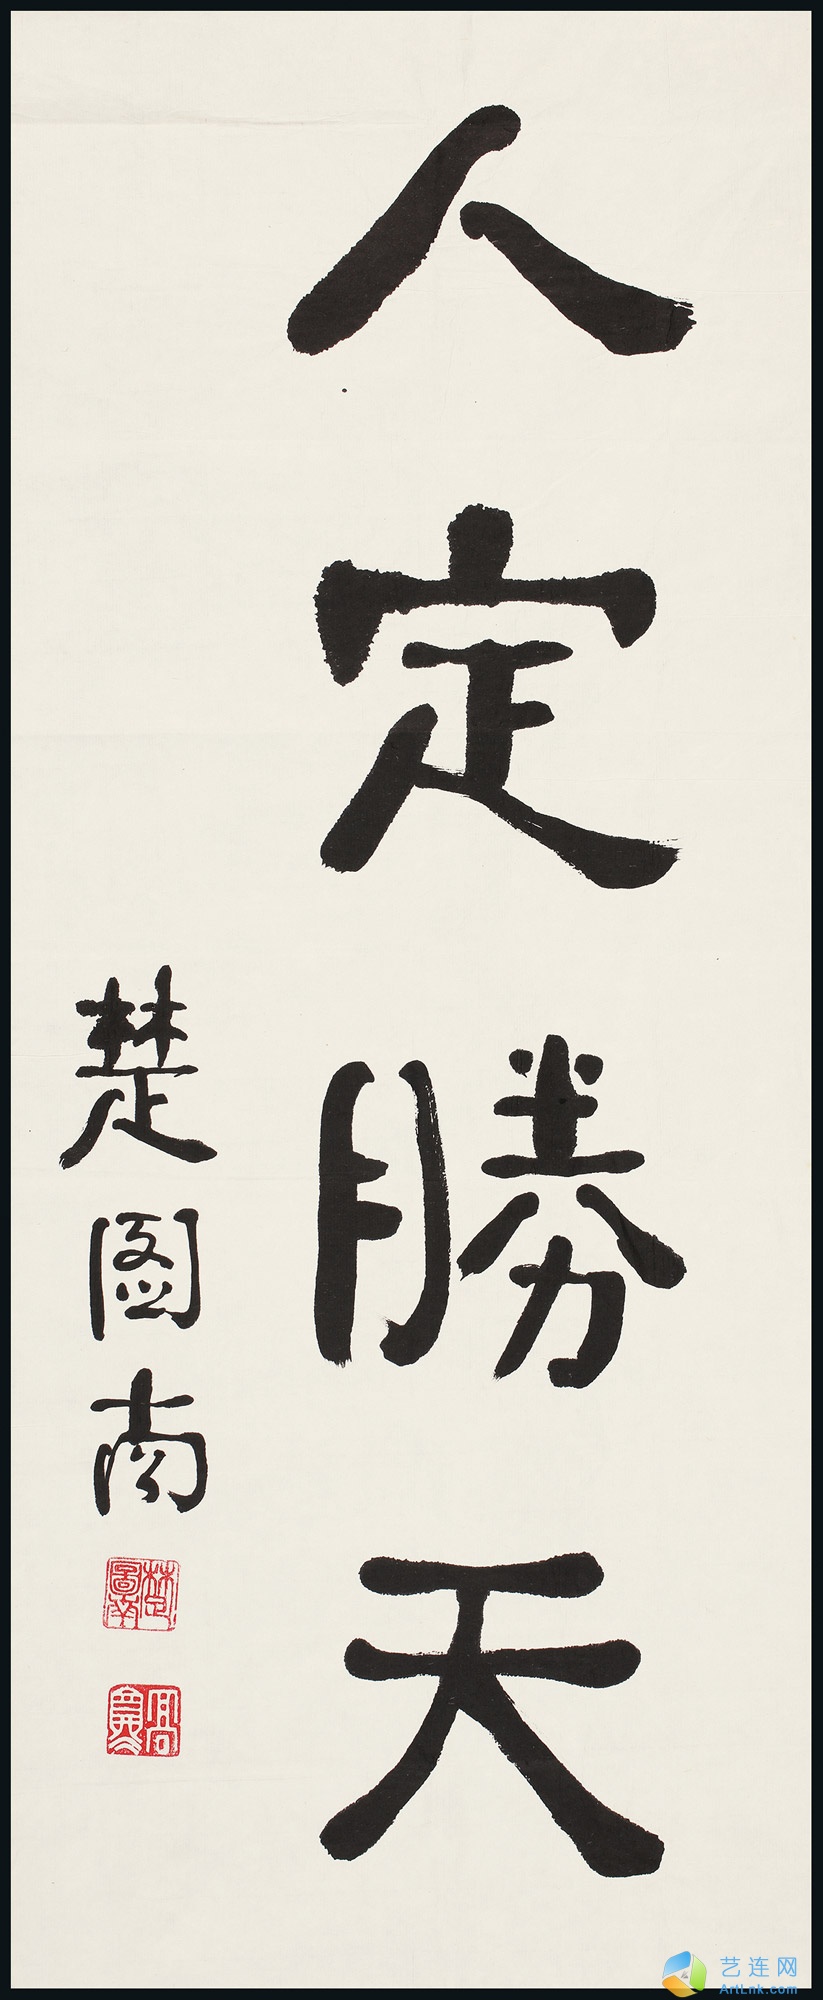 人定勝天
楚图南
楚圖南
艺连网
ArtLnk.com